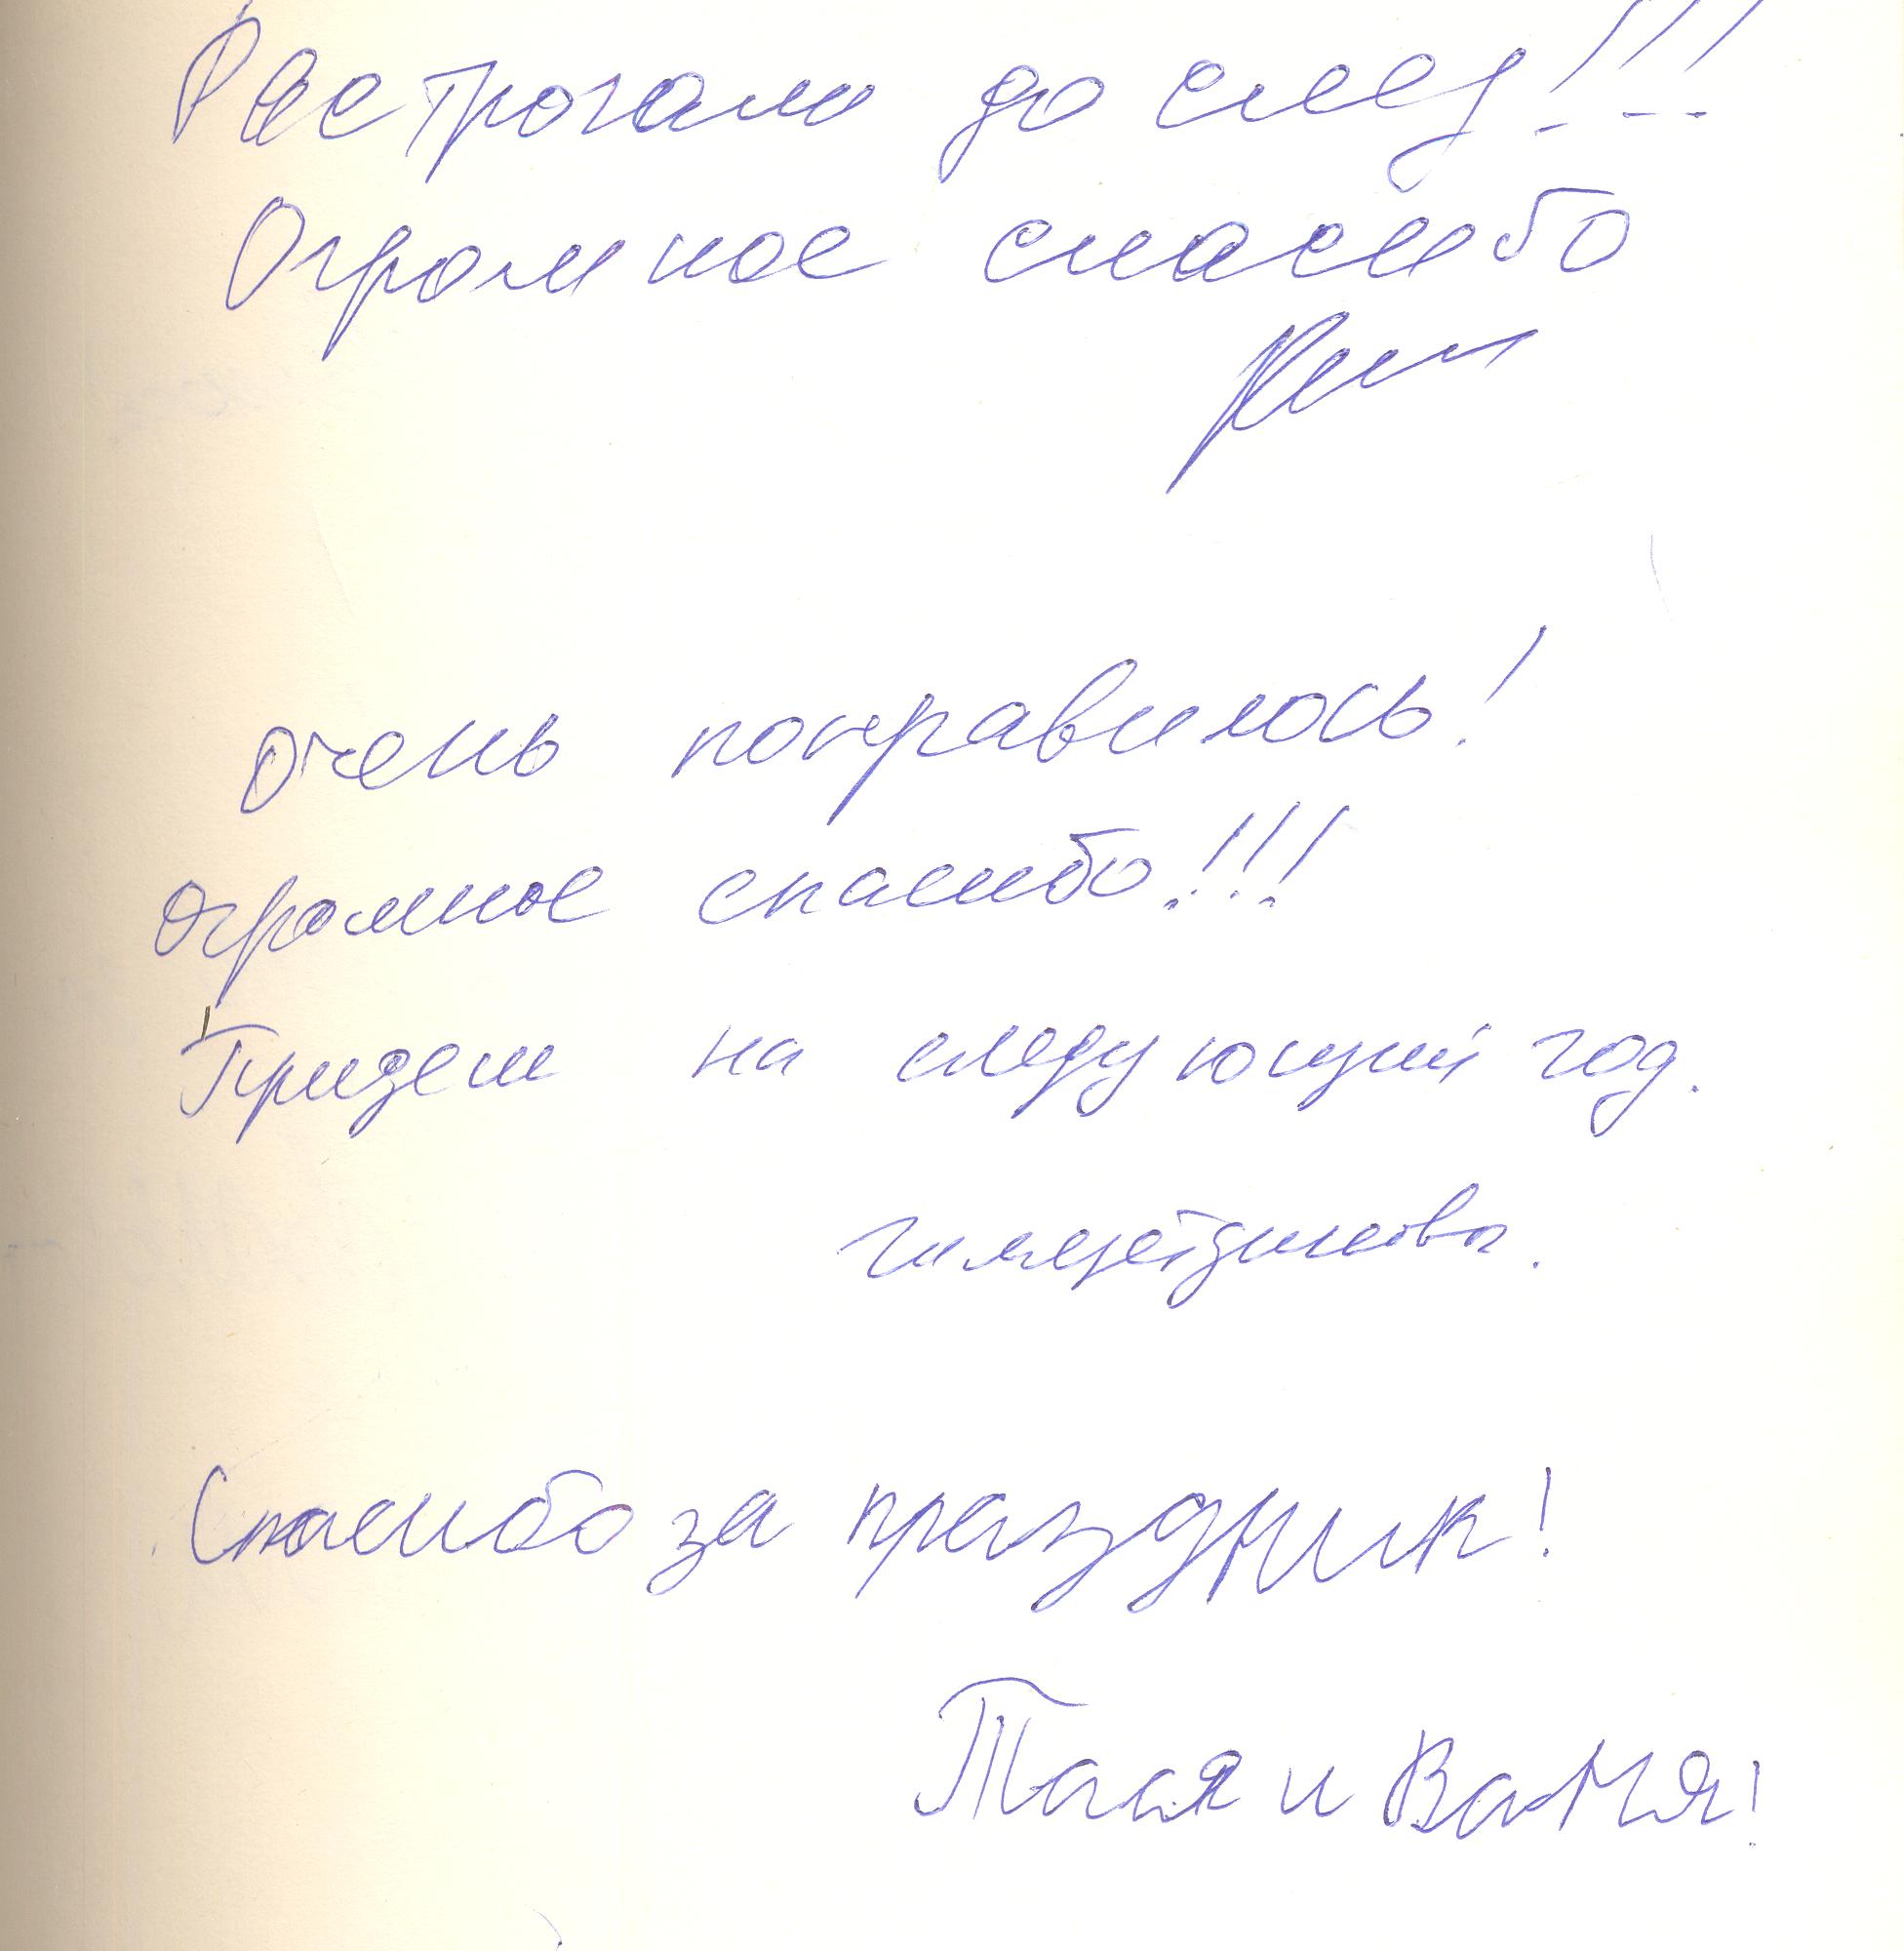 Растрогали до слез!!!
Огромное спасибо
очень понравилось!
огромное спасибо!!!
Придем на следующий год.
Спасибо за праздник!
Тася и Ваня!